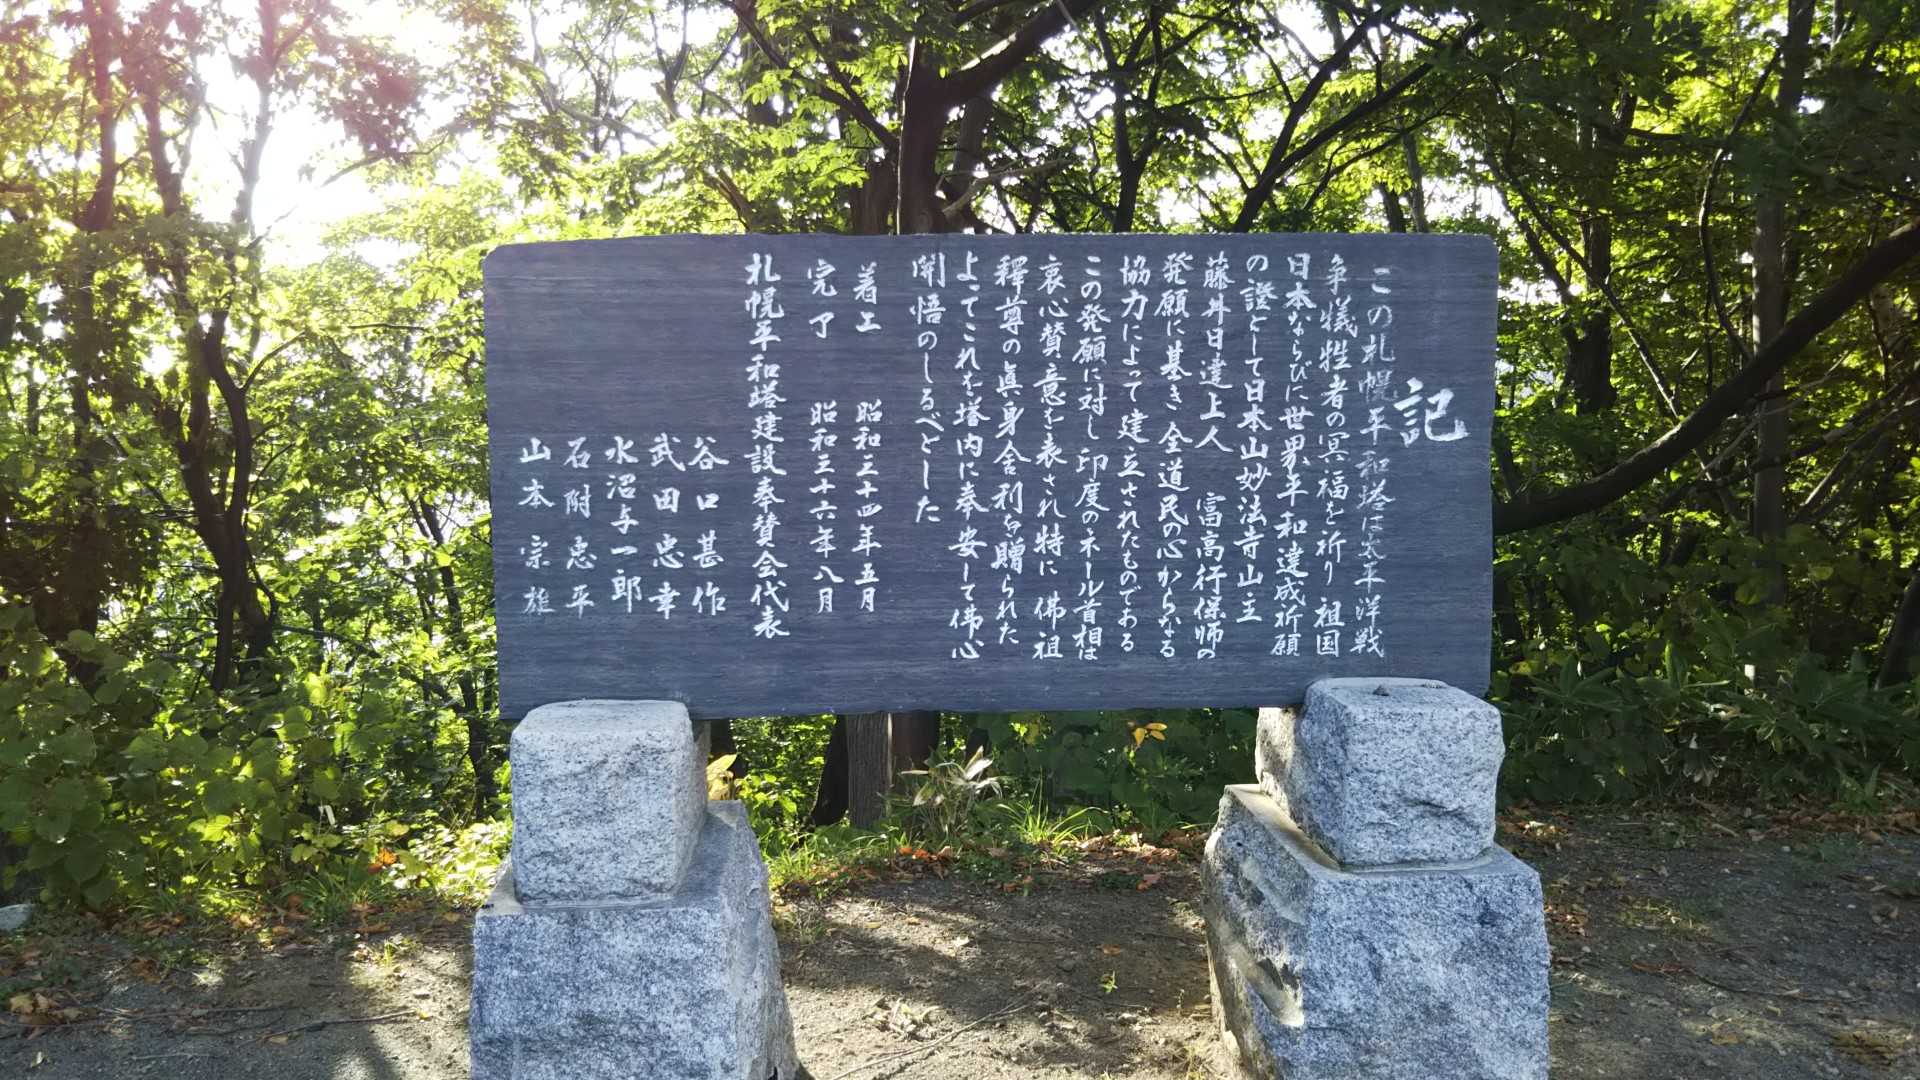 記
この札幌平和塔は太平洋戦
争犠牲者の冥福を祈り祖国
日本ならびに世界平和達成祈願
の證として日本山妙法寺山主
藤井日達上人　富高行保師の
発願に基き全道民の心からなる
協力によって建立されたものである
この発願に対し印度のネール首相は
衷心賛意を表され特に佛祖
釋尊の眞身舎利を贈られた
よってこれを塔内に奉安して佛心
開悟のしるべとした
着工　昭和三十四年五月
完了　昭和三十六年八月
札幌平和塔建設奉賛会代表
谷口甚作
武田忠幸
水沼与一郎
石附忠平
山本宗雄